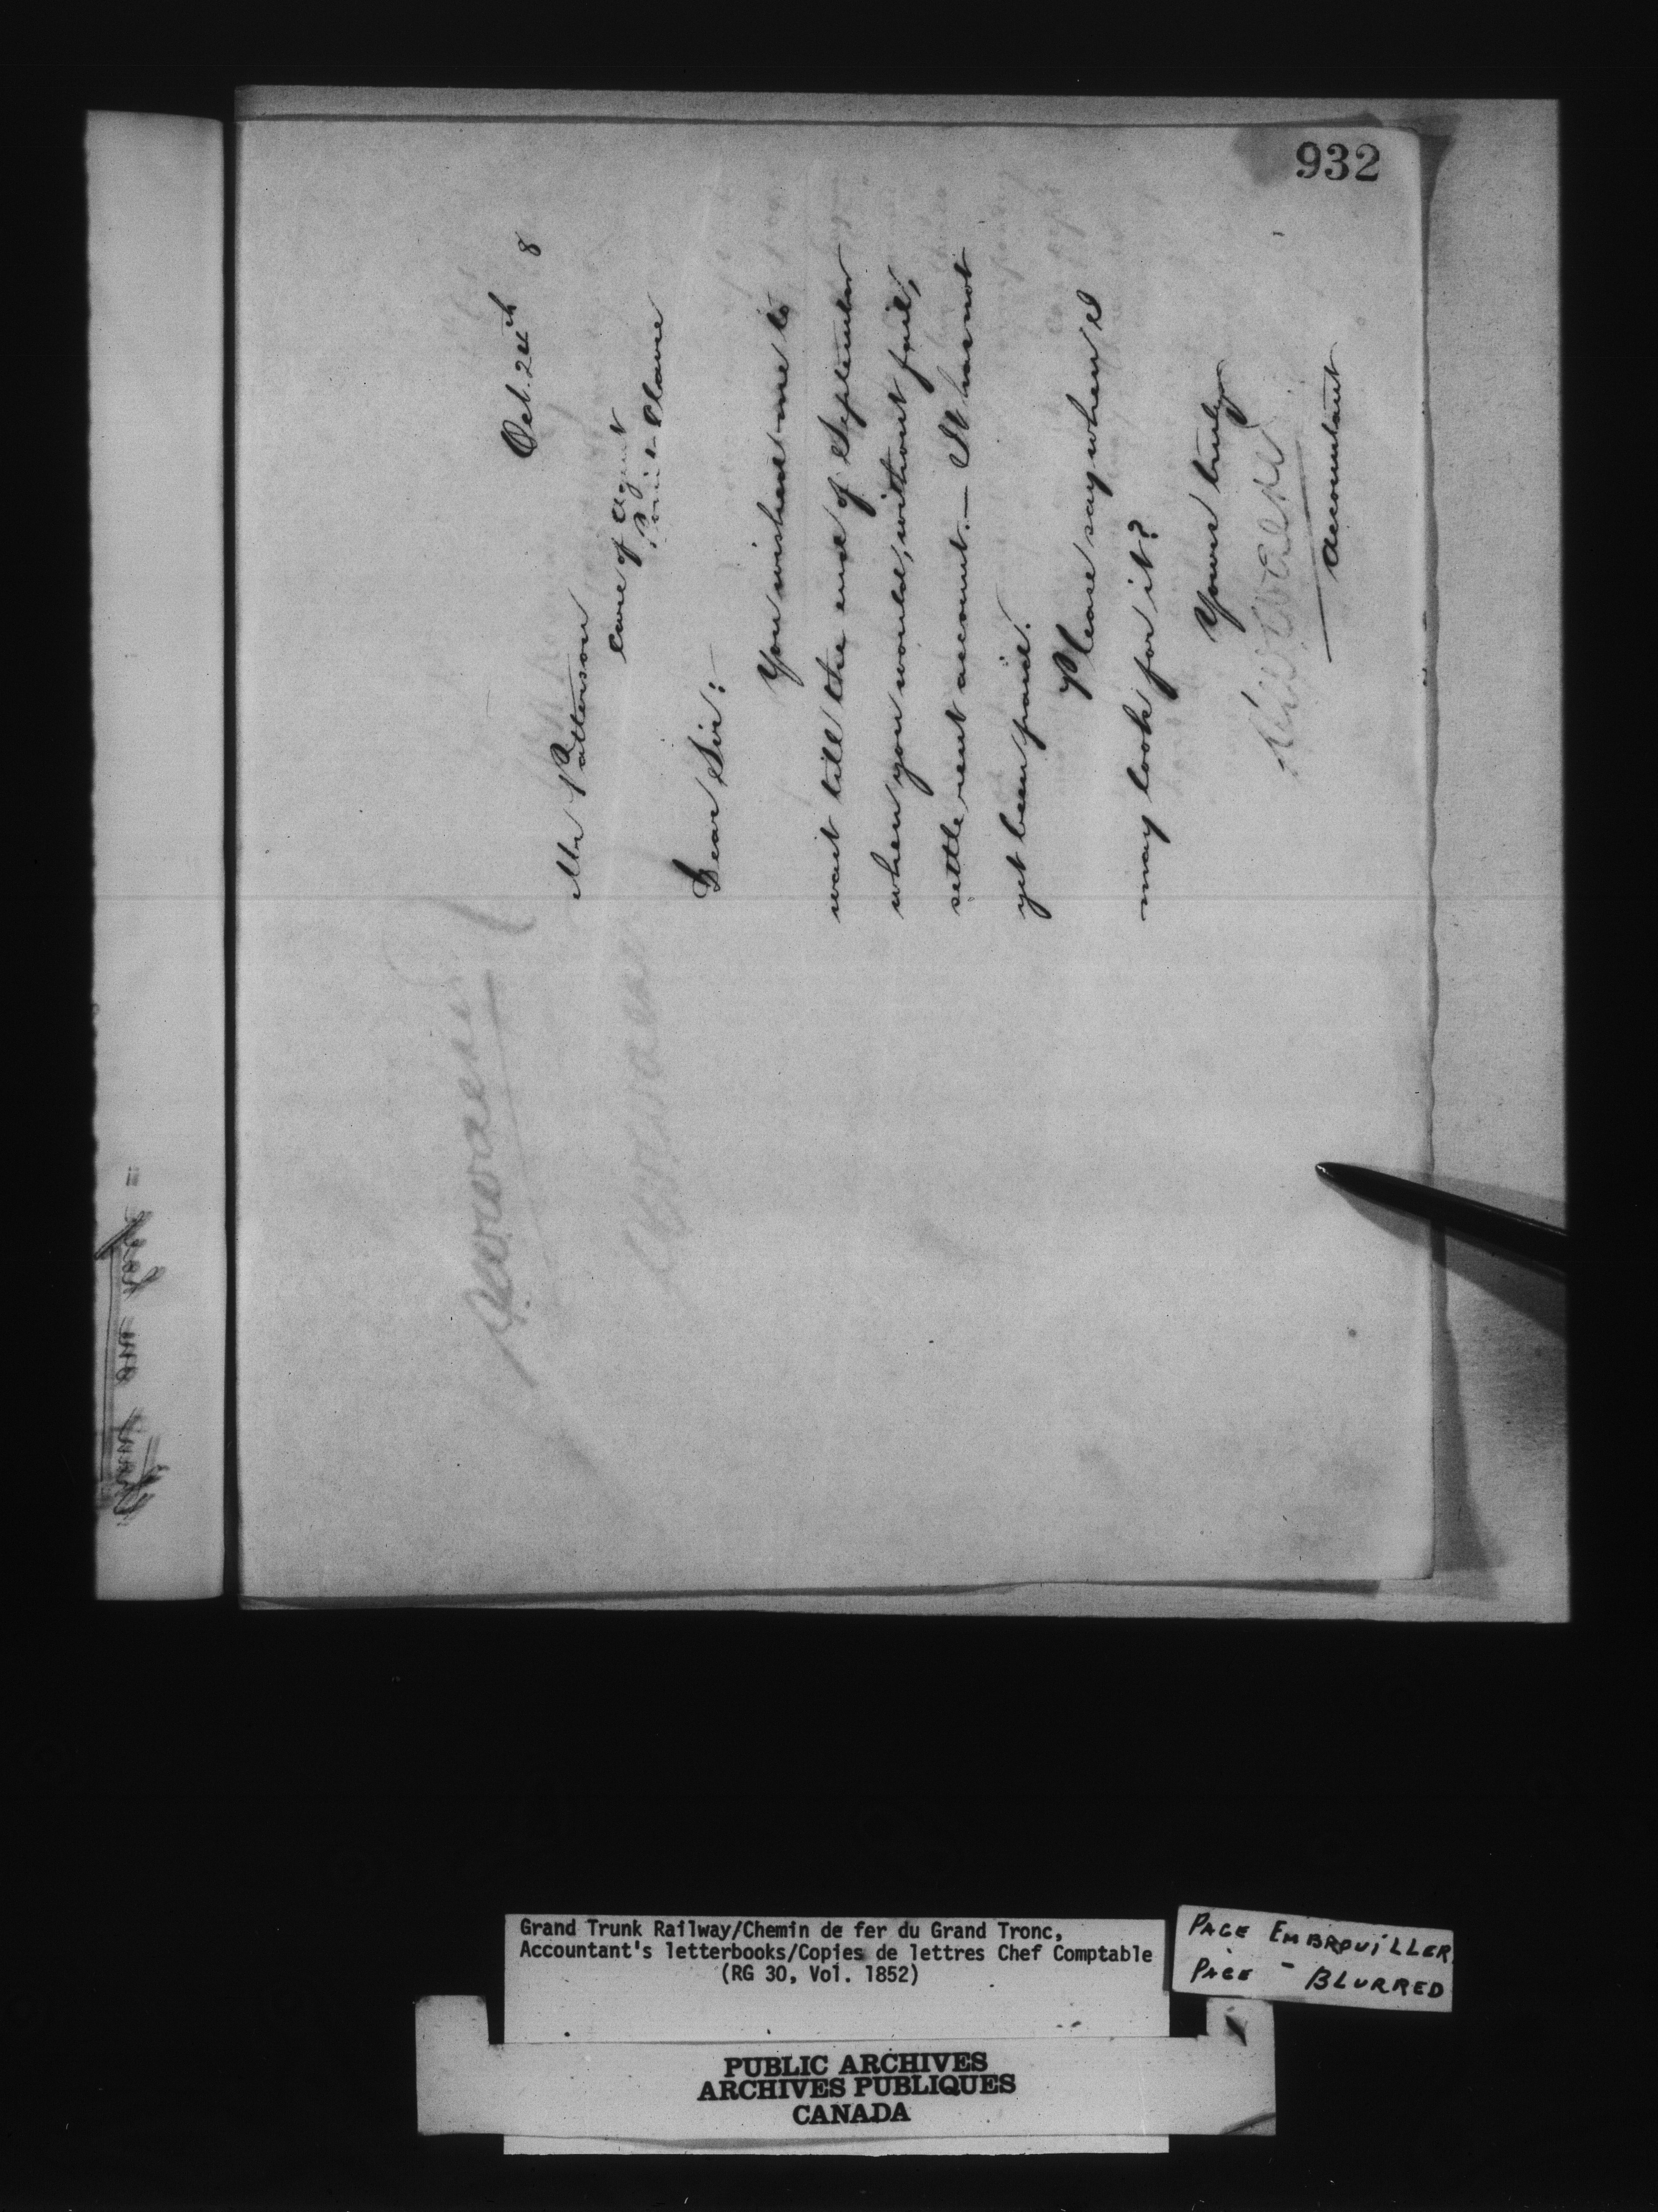 932
Oct. 24th 8
Mr Patterson
care of Agent
Point Claire
Dear Sir:
You wished me to
wait till the end of September
when you would, without fail,
settle rent account. — It has not
yet been paid.
Please say when I
may look for it?
Yours truly
Accountant
Grand Trunk Railway/Chemin de fer du Grand Tronc,
Accountant's letterbooks/Copies de lettres Chef Comptable
(RG 30, Vol. 1852)
PAGE EMBROUILLER
PAGE - BLURRED
PUBLIC ARCHIVES
ARCHIVES PUBLIQUES
CANADA